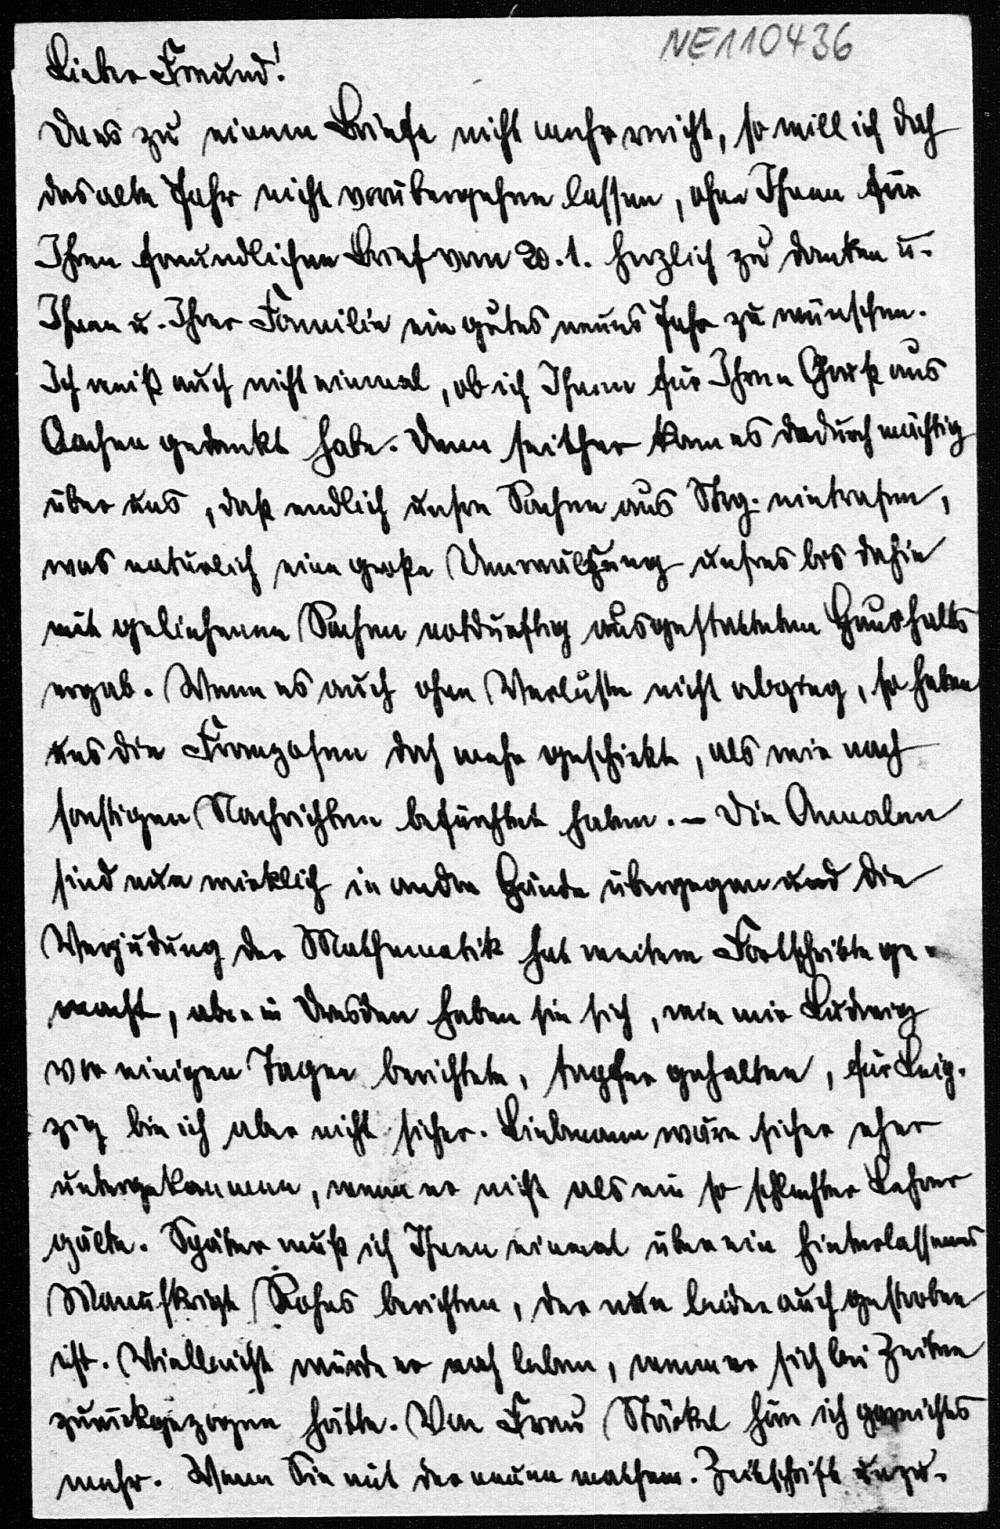 NE110436
Lieber Freund!
Da es zu einem Briefe nicht mehr reicht, so will ich doch
das alte Jahr nicht vorübergehen lassen, ohne Ihnen für
Ihren freundlichen Brief vom 20.1. herzlich zu danken u.
Ihnen u. Ihrer Familie ein gutes neues Jahr zu wünschen.
Ich weiß auch nicht einmal, ob ich Ihnen für Ihren Gruß aus
Aachen gedankt habe. Denn seither kam es dadurch mächtig
über uns, daß endlich unsre Sachen aus Strg. eintrafen,
was natürlich eine große Umwälzung unsres bis dahin
mit geliehenen Sachen notdürftig ausgestatteten Haushalts
ergab. Wenn es auch ohne Verluste nicht abging, so haben
uns die Franzosen doch mehr geschickt, als wir nach
sonstigen Nachrichten befürchtet haben. – Die Annalen
sind nun wirklich in andre Hände übergegangen und die
Verjudung der Mathematik hat weitere Fortschritte ge-
macht, aber in Dresden haben sie sich, wie mir Ludwig
vor einigen Tagen berichtete, tapfer gehalten, für Leip-
zig bin ich aber nicht sicher. Liebmann wäre sicher eher
untergekommen, wenn er nicht als ein so schlechter Lehrer
gälte. Später muß ich Ihnen einmal über ein hinterlassenes
Manuskript Rohns berichten, der nun leider auch gestorben
ist. Vielleicht würde er noch leben, wenn er sich bei Zeiten
zurückgezogen hätte. Von Frau Stäckel hör ich garnichts
mehr. Wenn Sie mit der neuen mathem. Zeitschrift